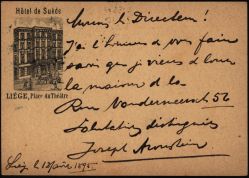 Hôtel de Suède
LIÈGE, Place du Théâtre
Monsieur le Directeur!
J'ai l'honneur de vous faire
savoir que je viens de louer
la maison de la
Rue Vandermeersch 52
Salutations distinguées
Joseph
Liège le 12